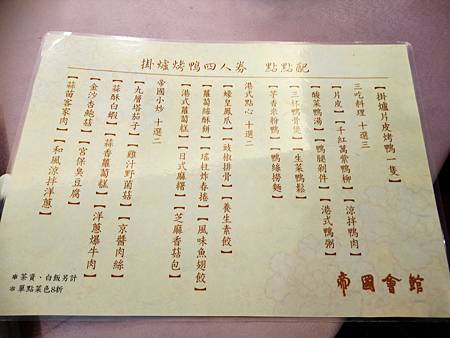 掛爐烤鴨四人券 點點配
【掛爐片皮烤鴨一隻】
三吃料理 十選三
【片皮】【千紅萬紫鴨柳】【涼拌鴨肉】
【酸菜鴨湯】【鴨腿剁件】【港式鴨粥】
【三杯鴨骨煲】【生菜鴨鬆】
【芋香米粉鴨】【鴨絲撈麵】
港式點心 十選二
【蠔皇鳳爪】【豉椒排骨】【養生素餃】
【蘿蔔絲酥餅】【瑤柱炸春捲】【風味魚翅餃】
【港式蘿蔔糕】【日式麻糬】【芝麻香菇包】
帝國小炒 十選二
【九層塔茄子】【雞汁野菌菇】
【蒜酥白蝦】【蒜香蘿蔔糕】【京醬肉絲】
【金沙杏鮑菇】【宮保臭豆腐】【洋蔥爆牛肉】
【蒜苗客家肉】【和風涼拌洋蔥】
帝國會館
*茶資、白飯另計
*單點菜色8折